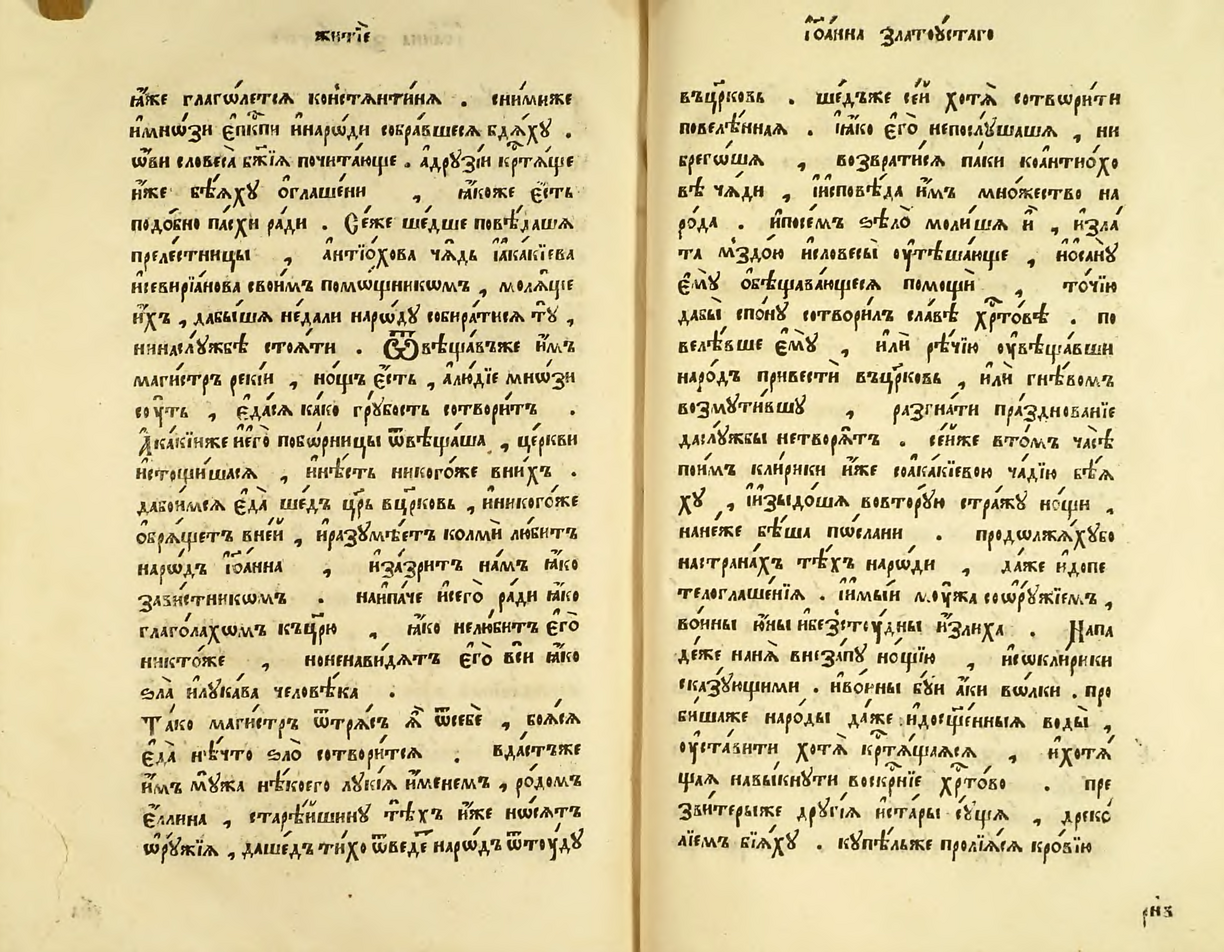 житїе
ꙗ҆́же глаго́летсѧ конста̀нтинѧ . снимиже
и҆мно́зи є҆пⷭ҇кпи и҆наро́ди собра́вшесѧ бдѧ́хꙋ .
ѡ҆́ви словеса̀ бж҃їѧ почита́юще . а҆дрꙋзїи крⷭ҇тѧ́ще
и҆̀же бѣѧ́хꙋ ѻ҆глаше́ни , ꙗ҆́коже є҆́сть
подо́бно па́схи ра́ди . Се́же ше́дше повѣ́дашѧ
преле́стницы , а҆нтїѻ́хова чѧ́дь і҆ака́кїева
и҆севирїа́нова свои́мъ помощникѡмъ , молѧ́ще
и҆́хъ , дабы́шѧ не́дали наро́дꙋ собира́тисѧ тꙋ̀ ,
нинаслꙋ́жбѣ стоѧ́ти . Ѿвѣща́въже и҆̀мъ
маги́стръ ре́кїи , но́щь є҆́сть , а҆лю́дїе мно́зи
соу́ть , є҆да́сѧ ка́ко грꙋ́бость сотвори́тъ .
А҆ка́кїиже и҆него̀ побо́рницы ѿвѣща́ша , це́ркви
и҆стощи́шасѧ , и҆нѣ́сть никого́же вни́хъ .
дабои́мсѧ є҆да̀ ше́дъ цр҃ь вцр҃ковь , и҆никого́же
ѡбрѧ́щетъ вне́й , и҆разꙋмѣ́етъ ко́лми лю́битъ
наро́дъ і҆ѻа́нна , и҆за́зритъ на́мъ ꙗ҆́ко
зави́стникѡмъ . наи́паче и҆сего̀ ра́ди ꙗ҆́ко
глаго́лахомъ къцр҃ю , ꙗ҆́ко нелю́битъ є҆го̀
никто́же , ноненави́дѧтъ є҆го̀ всѝ ꙗ҆́ко
ѕла̀ и҆лꙋка́ва человѣ́ка .
Та́ко маги́стръ ѿтрѧ́съ ѧ҆̀ ѿсебѐ , боѧ́сѧ
є҆да̀ нѣ́что ѕло̀ сотвори́тсѧ . вда́стъже
и҆̀мъ мꙋ́жа нѣ́коего лꙋкі́ѧ и҆́менемъ , ро́домъ
є҆́ллина , старѣ́йшинꙋ тѣ́хъ и҆̀же но́сѧтъ
ѻ҆рꙋ́жїѧ , даше́дъ ти́хо ѿведе́ наро́дъ ѿтоу́дꙋ
і҆ѻа́нна златоꙋ́стаго
въцр҃ковь . ше́дъже се́й хотѧ̀ сотвори́ти
повелѣ́ннаѧ . і҆ꙗ́ко є҆го̀ непослꙋ́шашѧ , ни
брего́шѧ , возврати́сѧ па́ки коа҆нтиѻ́хо
вѣ ча́ди , і҆исповѣ́да и҆̀мъ мно́жество на
ро́да . и҆посе́мъ ѕѣло̀ моли́шѧ и҆̀ , и҆зла
та мздо́ю и҆словесы̀ оу҆тѣша́юще , и҆ѻсанꙋ̀
є҆мꙋ̀ ѻ҆бѣщава́ющесѧ помощѝ , то́чїю
дабы̀ спо́нꙋ сотвори́лъ сла́вѣ хрⷭ҇то́вѣ . по
велѣ́вше є҆мꙋ̀ , и҆лѝ рѣ́чїю оу҆вѣща́вши
наро́дъ привестѝ въцр҃ковь , и҆лѝ гнѣ́вомъ
возмꙋти́вшꙋ , разгна́ти пра́зднованїе
даслꙋ́жбы нетворѧ́тъ . се́йже вто́мъ часѣ̀
пои́мъ кли́рики и҆̀же соа҆ка́кїевою ча́дїю бѣѧ
хꙋ , і҆изыдо́шѧ вовторꙋ́ю стра́жꙋ но́щи ,
нанеже бѣ́ша по́слани . продолжѧ́хꙋбо
настрана́хъ тѣ́хъ наро́ди , да́же и҆допе
телоглаше́нїѧ . і҆и́мый моу́жа соѻ҆рꙋ́жїемъ ,
во́ины ю҆́ны и҆безстоу́дны и҆́злиха . Напа
де́же нанѧ̀ внеза́пꙋ но́щїю , и҆сѡкли́рики
сказꙋ́ющими . и҆во́ины бꙋ́и а҆́ки во́лки . про
би́шаже наро́ды да́же и҆дос҃ще́нныѧ воды̀ ,
оу҆ста́вити хотѧ̀ крⷭ҇тѧ́щаѧсѧ , и҆хотѧ́
щаѧ навы́кнꙋти воскрⷭ҇нїе хрⷭ҇то́во . пре
зви́терыже дрꙋгі́ѧ и҆ста́ры сꙋ́щѧ , дреко́
лїемъ бїѧ́хꙋ . кꙋпѣ́льже пролїѧ́сѧ кро́вїю
рн҃з